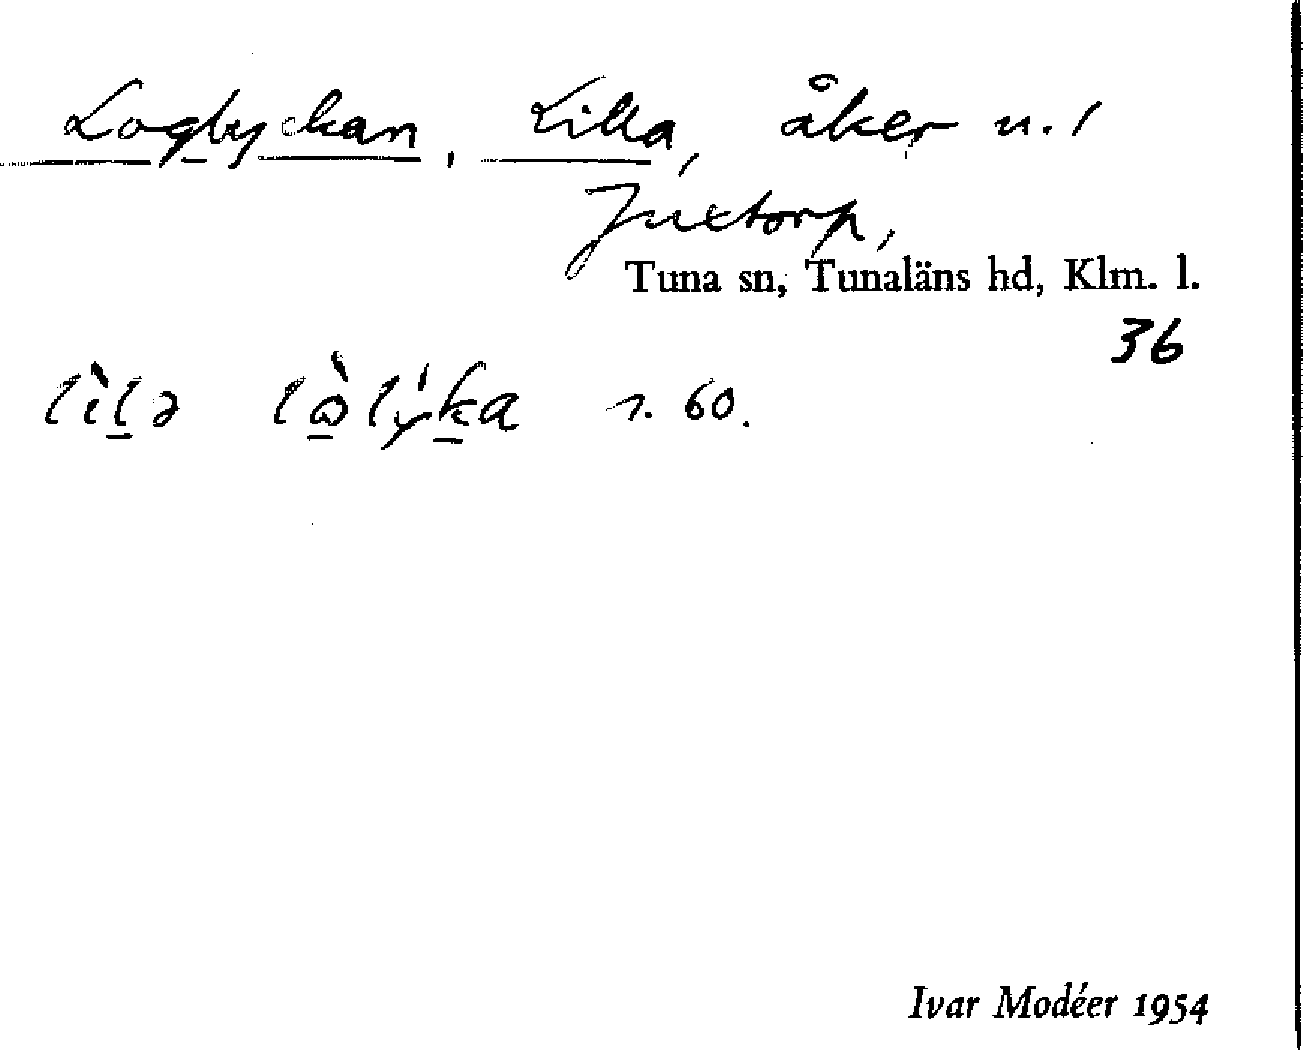 Loglyckan, Lilla, åker u. 1
Juxtorp,
Tuna sn, Tunaläns hd, Klm. l.
36
s. 60.
Ivar Modéer 1954